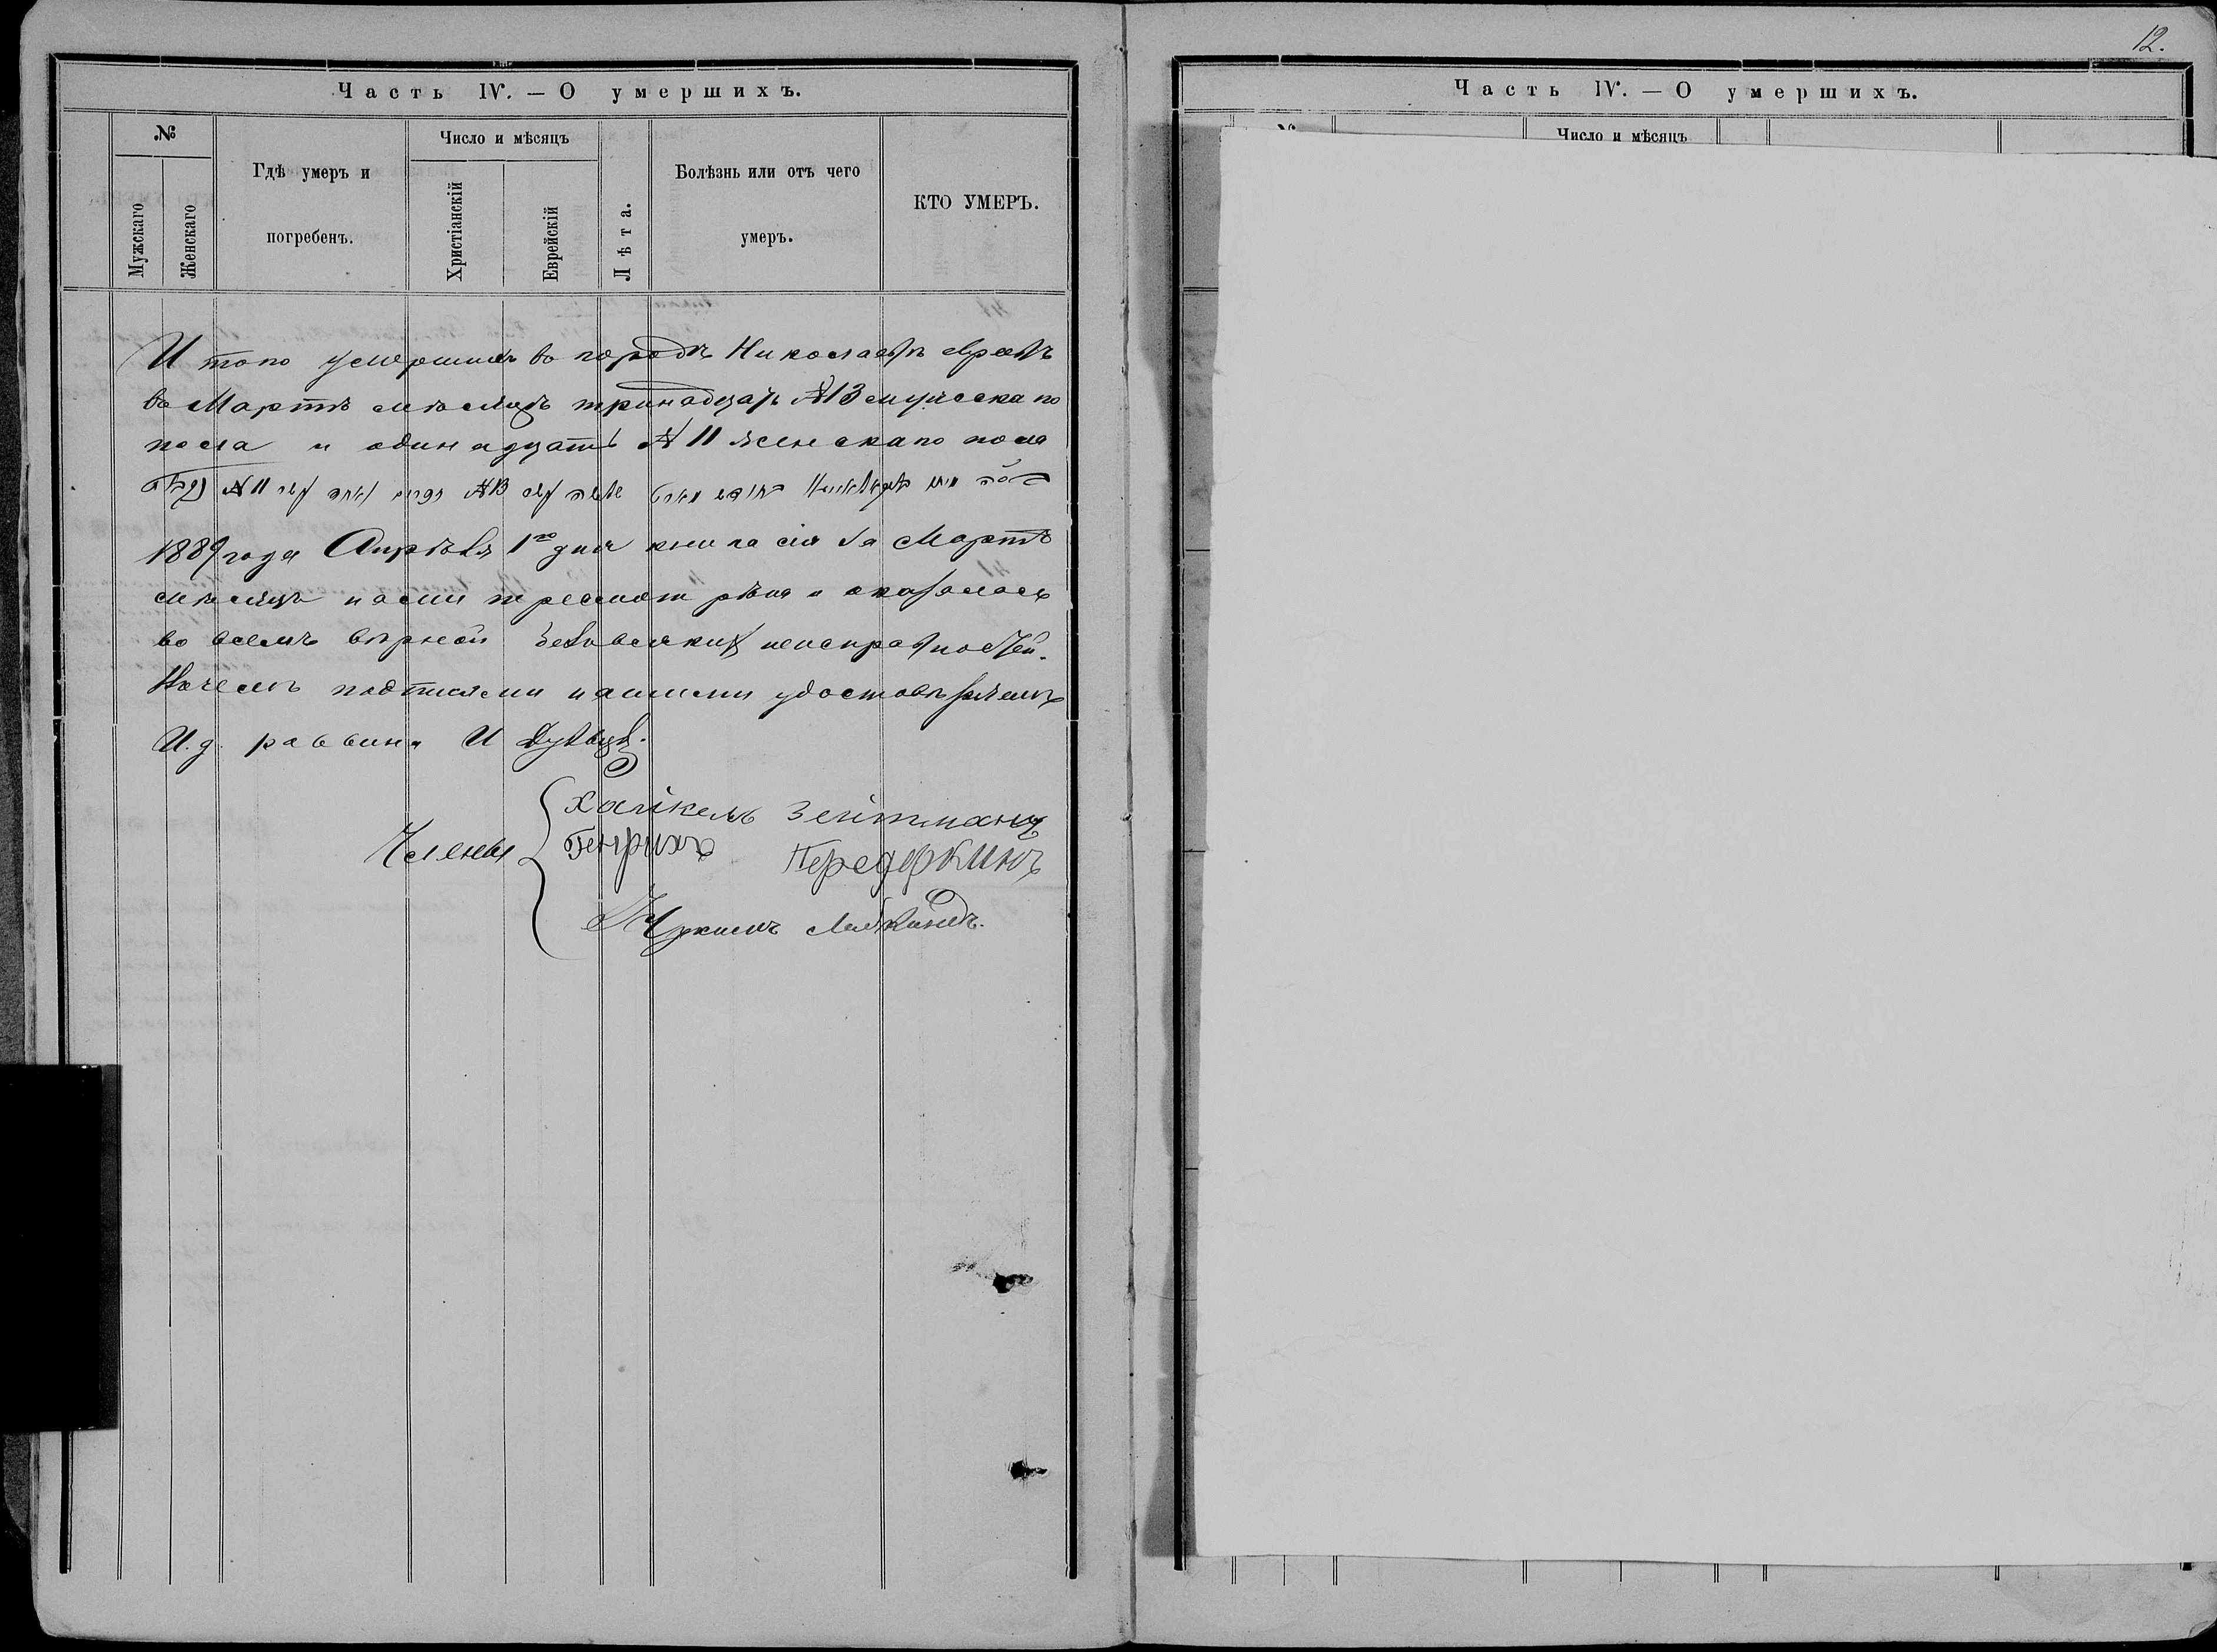 Часть IV. — О умершихъ.
№
Мужскаго
Женскаго
Гдѣ умеръ и
погребенъ.
Число и мѣсяцъ
Христіанскій
Еврейскій
Лѣта.
Болѣзнь или отъ чего
умеръ.
КТО УМЕРЪ.
Итого умершихъ въ городѣ Николаевѣ евреевъ
въ Мартѣ мѣсяцѣ тринадцать №13 мужскаго
пола и одинадцать №11 женскаго пола
№11 №13
1889 года Апрѣля 1го дня книга сія за Мартъ
мѣсяцъ нами пересмотрѣна и оказалась
во всемъ вѣрной безъ всякихъ неисправностей.
Въ чемъ подписями нашими удостовѣряемъ
И. д. раввина И
Члены
Хайкель Зейтманъ
Генрихъ
12.
Часть IV. — О умершихъ.
Число и мѣсяцъ